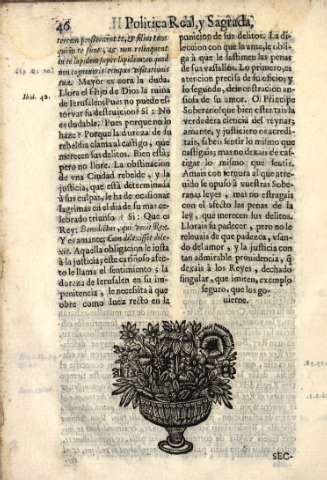 46 II Politica Real, y Sagrada,
te, & filios tuos
qui in te sunt, & non relinquent
in te lapidem super lapidem: eo quod
non cognoveris tempus visitationis
tuæ. Mayor es aora la duda.
Llora el Hijo de Dios la ruina
de Ierusalen: Pues no puede es-
torvar su destruicion? Si: No
es dudable. Pues porque no lo
haze? Porque la dureza de su
rebeldia clama al castigo, que
merecen sus delitos. Bien està;
pero no llore. La obstinacion
de vna Ciudad rebelde, y la
justicia, que està determinada
à sus culpas, le ha de ocasionar
lagrimas el dia de su mas ce-
lebrado triunfo? Si: Que es
Rey. Benedictus, qui venit Rex.
Y es amante; Cum dilexisset
Aquella obligacion le insta
à la justicia; este cariñoso afec-
to le llama el sentimiento; la
dureza de Ierusalen en su im-
penitencia, le necessita à que
obre como Iuez recto en la
Ibid. 42.
punicion de sus delitos. La di-
leccion con que la ama, le obli-
ga à que se lastimen las penas
de sus vassallos. Lo primero, es
atencion precisa de su oficio; y
lo segundo, demonstracion an-
siosa de su amor. O Principe
Soberano! que bien està la
verdadera ciencia del reynar;
amante, y justiciero os acredi-
tais, sabeis sentir lo mismo que
castigais; mas no dexais de cas-
tigar lo mismo que sentis.
Amais con ternura al que atre-
vido se opuso à vuestras Sobe-
ranas leyes, mas no estragais
con el afecto las penas de la
ley, que merecen sus delitos.
Llorais su padecer, pero no le
relevais de que padezca, vsan-
do del amor, y la justicia con
tan admirable providencia, q̃
dexais à los Reyes, dechado
singular, que imiten, exemplo
seguro, que los go-
vierne.
SEC-